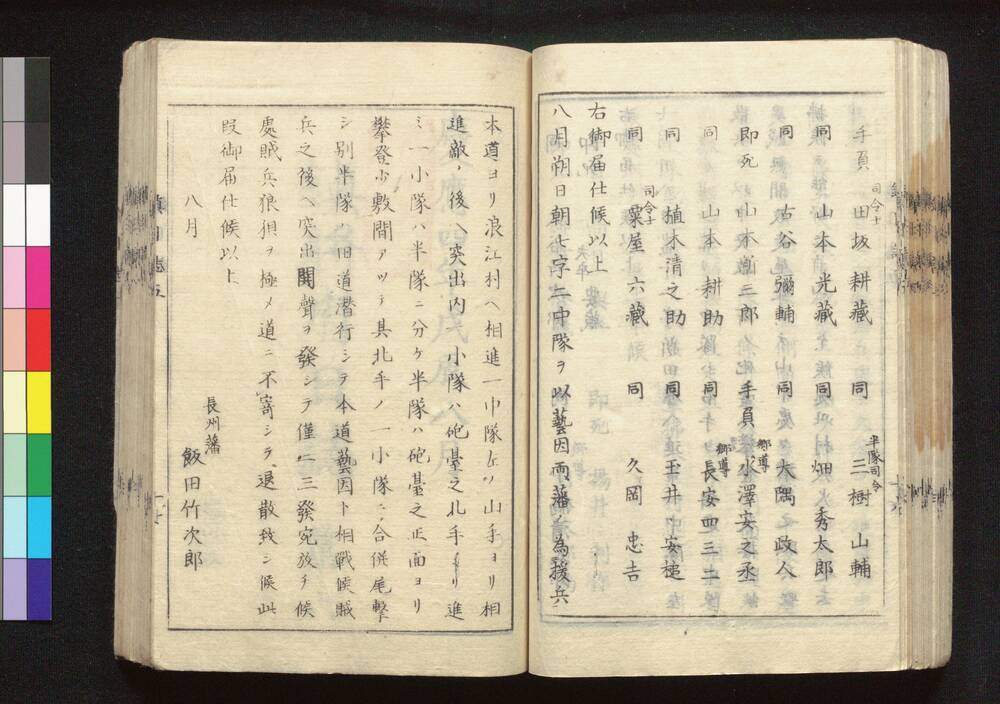 手負 司令士 田坂耕藏 同 半隊司令 三樹山輔
同 山本光藏 同 畑秀太郎
同 古谷彌輔 同 大隅政人
即死 山本 三郎 手負 嚮導 水澤安之丞
同 山本耕助 同 嚮導 長安四三二
同 植木清之助 同 玉井安槌
同 司令士 粟屋六藏 同 久岡忠吉
右御届仕候以上
八月朔日朝七字二中隊ヲ以藝因両藩為援兵
本道ヨリ浪江村ヘ相進一中隊ハ山手ヨリ相
進敵ノ後ヘ突出内一小隊ハ砲臺之北手ヨリ進
ミ一小隊ハ半隊ニ分ケ半隊ハ砲臺之正面ヨリ
攀登少敷間アツテ其北手ノ一小隊ニ合併尾撃
シ別半隊ハ旧道潜行シテ本道藝因ト相戦候賊
兵之後ヘ突出鬨聲ヲ發シテ僅ニ三發宛放チ候
處賊兵狼狽ヲ極メ道ニ不寄シテ退散致シ候此
段御届仕候以上
八月
長州藩
飯田竹次郎